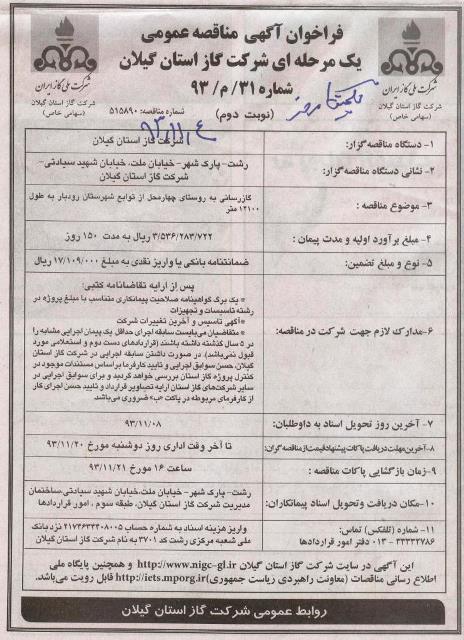 فراخوان آگهی مناقصه عمومی
یک مرحله ای شرکت گاز استان گیلان
شماره ۳۱/م/۹۳
(نوبت دوم)
شماره مناقصه: ۵۱۵۸۹۰
شرکت ملی گاز ایران
شرکت گاز استان گیلان
(سهامی خاص)
شرکت ملی گاز ایران
شرکت گاز استان گیلان
(سهامی خاص)
۹۳،۱۱،۴
۱- دستگاه مناقصه گزار:
شرکت گاز استان گیلان
۲- نشانی دستگاه مناقصه گزار:
رشت- پارک شهر- خیابان ملت، خیابان شهید سیادتی-
شرکت گاز استان گیلان
۳- موضوع مناقصه :
گازرسانی به روستای چهارمحل از توابع شهرستان رودبار به طول
۱۲۱۰۰ متر
۴- مبلغ برآورد اولیه و مدت پیمان :
۳/۵۳۶/۲۸۳/۷۲۲ ریال به مدت ۱۵۰ روز
۵- نوع و مبلغ تضمین:
ضمانتنامه بانکی یا واریز نقدی به مبلغ ۱۷/۱۰۹/۰۰۰ ریال
۶-مدارک لازم جهت شرکت در مناقصه:
پس از ارایه تقاضانامه کتبی:
* یک برگ گواهینامه صلاحیت پیمانکاری متناسب با مبلغ پروژه در
رشته تاسیسات و تجهیزات
*آگهی تاسیس و آخرین تغییرات شرکت
* متقاضیان می‌بایست سابقه اجرای حداقل یک پیمان اجرایی مشابه را
در ۵ سال گذشته داشته باشند (قراردادهای دست دوم و استعلامی مورد
قبول نمی‌باشد). در صورت داشتن سابقه اجرایی در شرکت گاز استان
گیلان، حسن سوابق اجرایی و تایید کارفرما براساس مستندات موجود در
کنترل پروژه گاز استان بررسی خواهد گردید و برای سوابق اجرایی در
سایر شرکت‌های گاز استان ارایه تصاویر قرارداد و تایید حسن اجرای کار
از کارفرمای مربوطه در پاکت «ب» ضروری می‌باشد.
۷- آخرین روز تحویل اسناد به داوطلبان:
۹۳/۱۱/۰۸
۸-آخرین مهلت دریافت پاکات پیشنهاد قیمت از مناقصه گران:
تا آخر وقت اداری روز دوشنبه مورخ ۹۳/۱۱/۲۰
۹-زمان بازگشایی پاکات مناقصه :
ساعت ۱۶ مورخ ۹۳/۱۱/۲۱
۱۰-مکان دریافت وتحویل اسناد پیمانکاران:
رشت- پارک شهر- خیابان ملت،خیابان شهید سیادتی،ساختمان
مدیریت شرکت گاز استان گیلان، طبقه سوم ، امور قراردادها
۱۱- شماره (تلفکس) تماس:
۳۳۳۳۲۷۸۶ - ۰۱۳ دفتر امور قراردادها
واریز هزینه اسناد به شماره حساب ۲۱۷۴۶۳۴۳۰۸۰۰۵ نزد بانک
ملی شعبه مرکزی رشت کد ۳۷۰۱ به نام شرکت گاز استان گیلان
این آگهی در سایت شرکت گاز استان گیلان http://www.nigc-gl.ir و همچنین پایگاه ملی
اطلاع رسانی مناقصات (معاونت راهبردی ریاست جمهوری) http://iets.mporg.ir قابل رویت می‌باشد.
روابط عمومی شرکت گاز استان گیلان